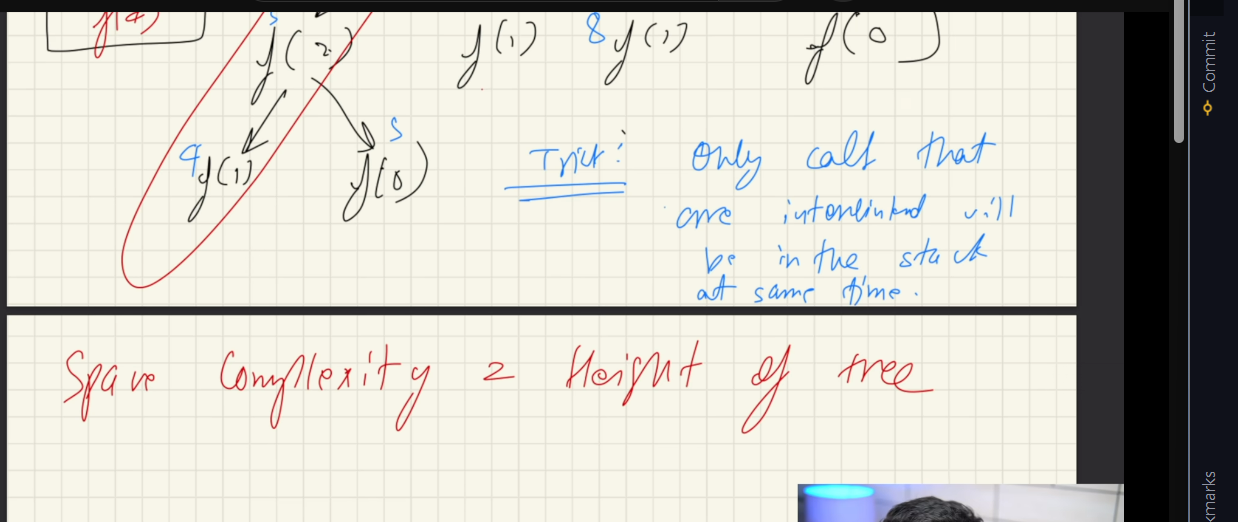 f(4)
3
f(2) f(1) 8 f(1) f(0)
4 f(1) 5 f(0)
Trick: Only calls that
are interlinked will
be in the stack
at same time.
Space Complexity = Height of tree
Commit
kmarks